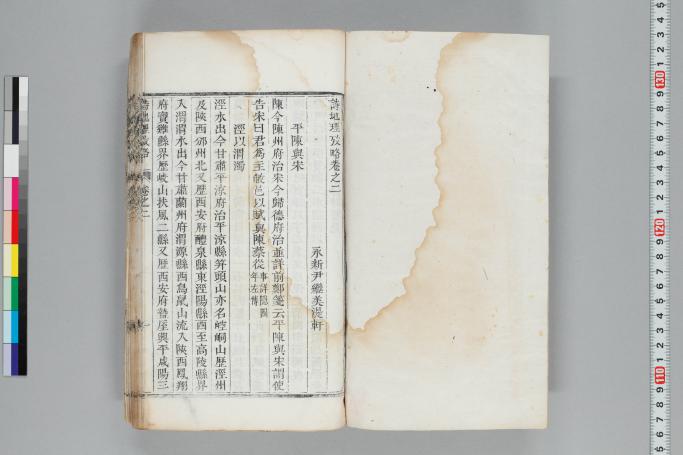 詩地理攷略卷之二
永新尹繼美湜軒
平陳與宋
陳今陳州府治宋今歸德府治並詳前鄭箋云平陳與宋謂使
告宋曰君爲主敝邑以賦與陳蔡從事詳隱四年左傳
涇以渭濁
涇水出今甘肅平涼府治平涼縣笄頭山亦名崆峒山歷涇州
及陝西邠州北又歷西安府醴泉縣東涇陽縣西至高陵縣界
入渭渭水出今甘肅蘭州府渭源縣西鳥鼠山流入陝西鳳翔
府寶雞縣界歷岐山扶風二縣又歷西安府盩厔興平咸陽三
詩地理攷略 卷之二